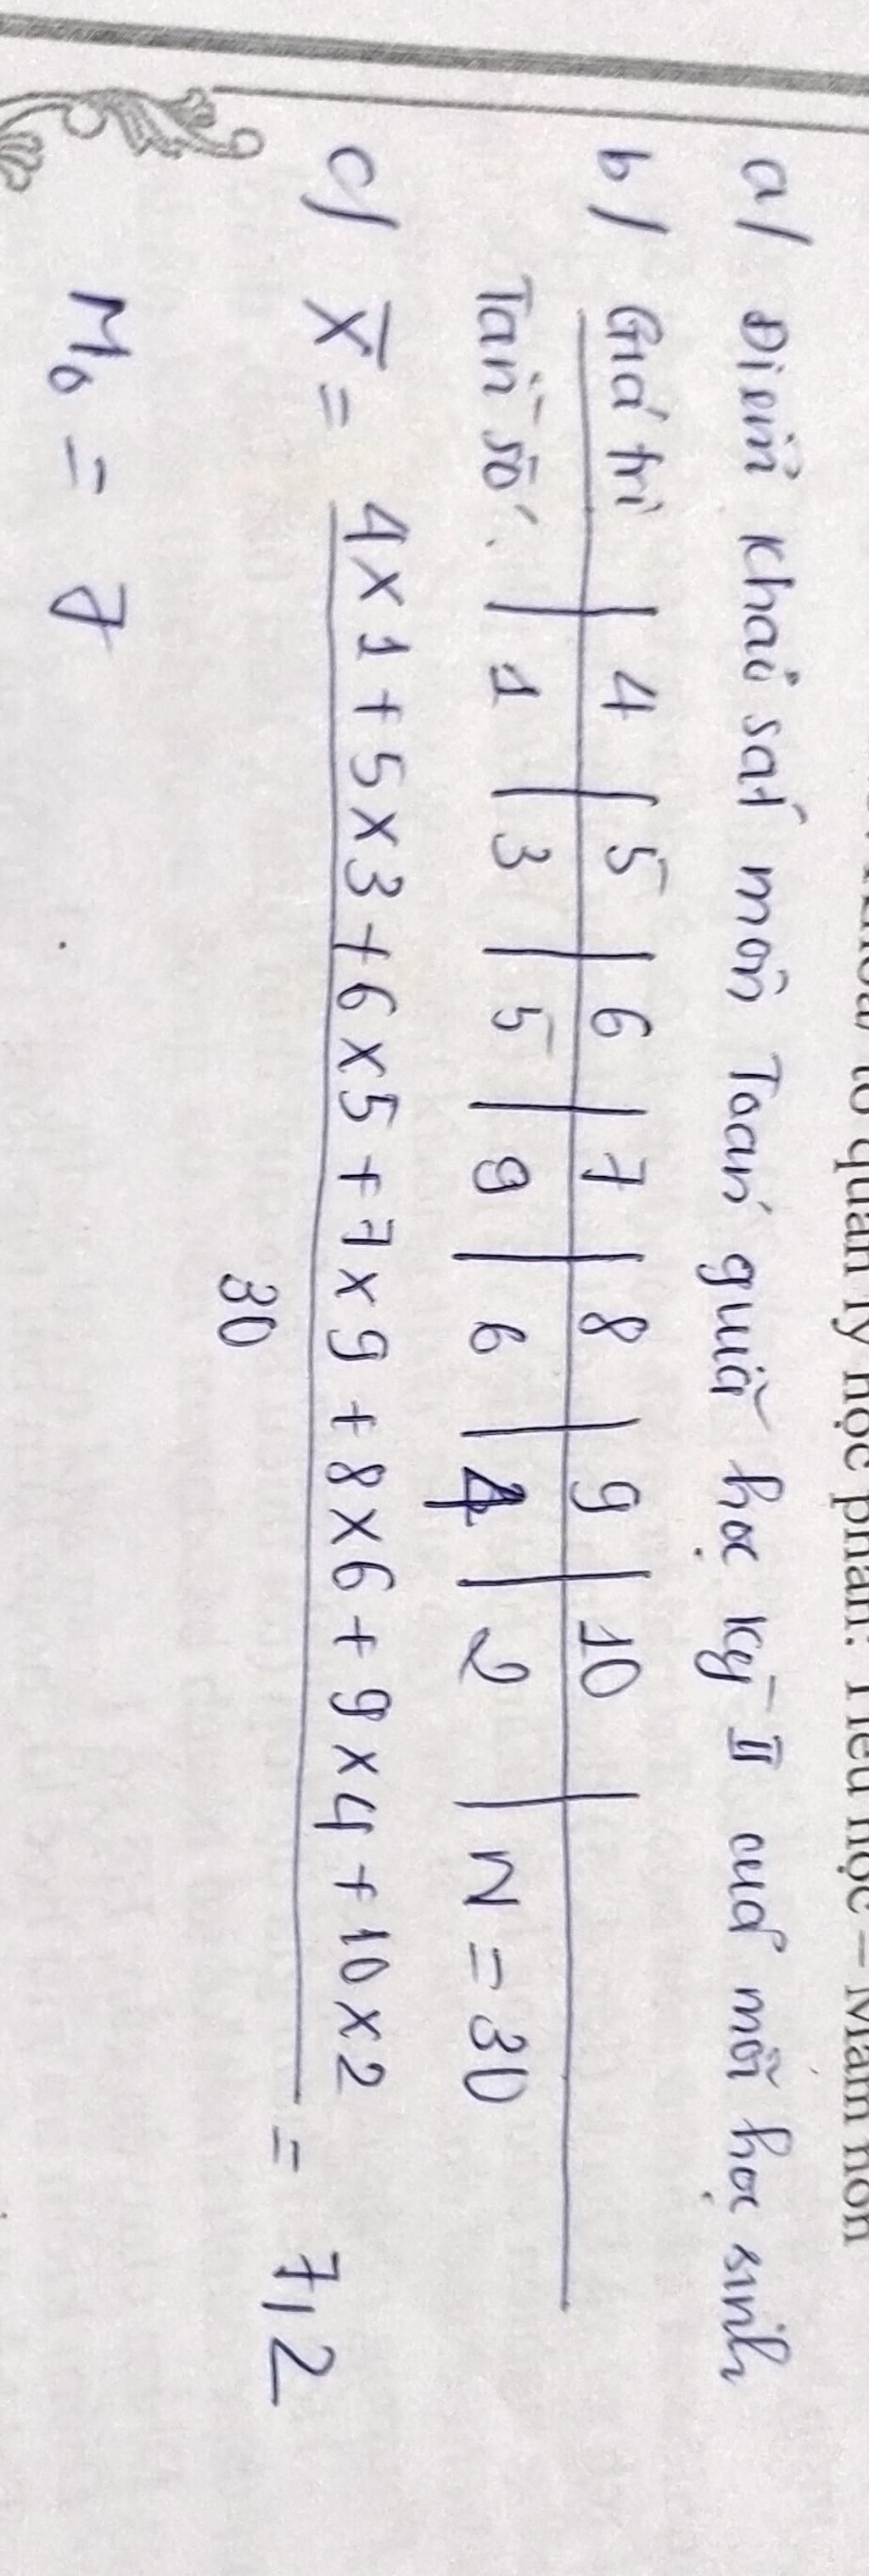 quản lý học phần: Tiểu học – Mầm non
a/ Điểm khảo sát môn Toán giữa học kỳ II của mỗi học sinh
b/ Giá trị | 4 | 5 | 6 | 7 | 8 | 9 | 10 |
Tần số. | 1 | 3 | 5 | 9 | 6 | 4 | 2 | N = 30
c/ X̄ = 4 x 1 + 5 x 3 + 6 x 5 + 7 x 9 + 8 x 6 + 9 x 4 + 10 x 2 = 7,2
30
M₀ = 7